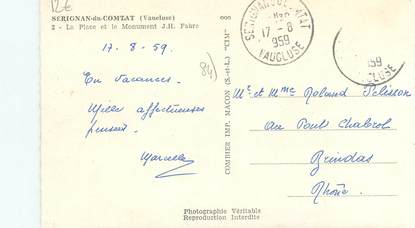 12€
SÉRIGNAN-du-COMTAT (Vaucluse)
2 - La Place et le Monument J.H. Fabre
17-8-59
(84)
En vacances.
Mille affectueuses
pensées.
Marcelle
COMBIER IMP. MACON (S.-et-L.) "CIM"
SERIGNAN DU COMTAT
17-8
959
VAUCLUSE
959
VAUCLUSE
Mr et Mme Roland Pelisson
au Pont Chabrol
Brindas
Rhône
Photographie Véritable
Reproduction Interdite